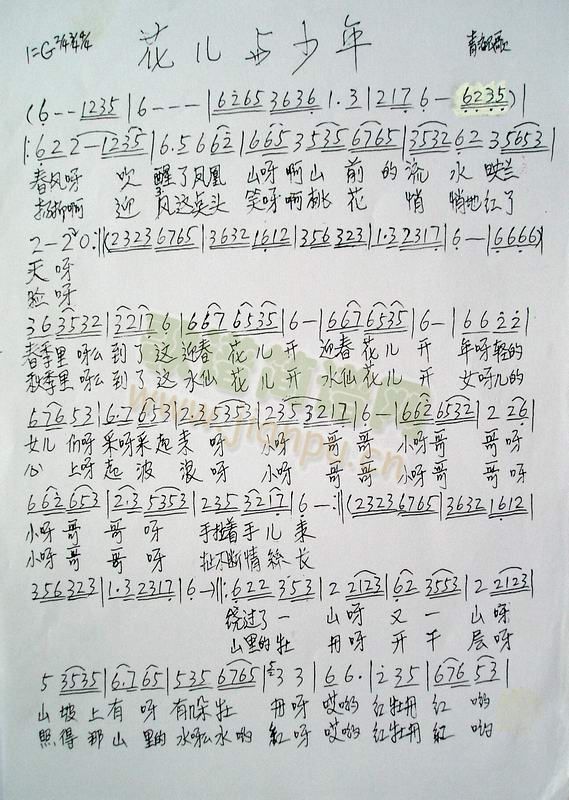 1=G 2/4 3/4 4/4 花儿与少年 青海民歌
(6 - - 1235 | 6 - - - | 6265 3636 1·3 | 217 6 - 6235) |
|: 622 - 1235 | 6·5 662 | 665 3535 6765 | 3532 62 35653 |
春风呀 吹 醒了凤凰 山呀啊山 前的流 水 映兰
杨柳啊 迎 风这点头 笑呀啊桃 花 悄 悄地红了
2 - 20 :|| (2323 6765 | 3632 1612 | 356 323 | 1·3 2317 | 6 - | 6666)
天呀
脸呀
36 3532 | 3217 6 | 667 6535 | 6 - | 667 6535 | 6 - | 6622 |
春季里呀么到了这迎春花儿开 迎春花儿开 年呀轻的
秋季里呀么到了这水仙花儿开 水仙花儿开 女呀儿的
676 53 | 6·7 653 | 235 353 | 235 3217 | 6 - | 662 6532 | 2 26 |
女儿们呀采呀采起来呀 小呀哥哥 小呀哥 哥呀
心上呀起波浪呀 小呀哥哥 小呀哥 哥呀
662 653 | 2·3 5353 | 235 3217 | 6 - :|| (2323 6765 | 3632 1612 |
小呀哥哥呀 手拉着手儿来
小呀哥哥呀 扯不断情絲长
356 323 | 1·3 2317 | 6 -) ||: 622 353 | 2 2123 | 62 3553 | 2 2123 |
绕过了一山呀又一山呀
山里的牡丹呀开千层呀
5 3535 | 6·7 65 | 535 6765 | 3 3 | 66· | 235 | 676 53 |
山坡上有呀有朵牡丹呀哎哟红牡丹红哟
照得那山里的水呀么水哟紅呀哎哟红牡丹紅哟
www.jianpu.cn